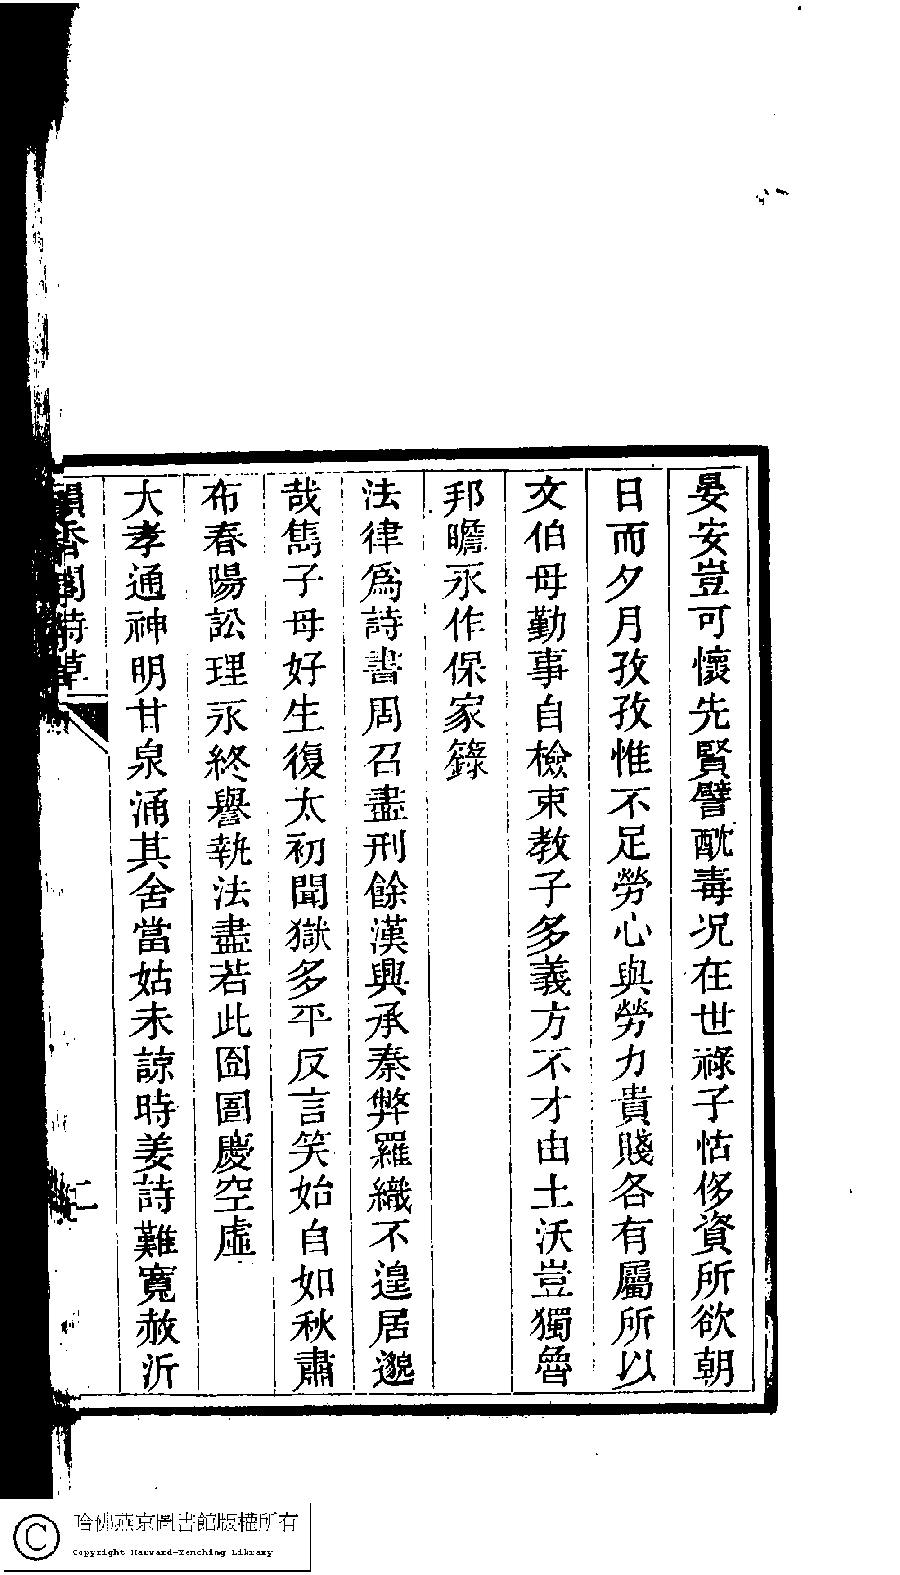 晏安豈可懷先賢譬酖毒況在世祿子怙侈資所欲朝
日而夕月孜孜惟不足勞心與勞力貴賤各有屬所以
文伯母勤事自檢束教子多義方不才由土沃豈獨魯
邦瞻永作保家籙
法律爲詩書周召盡刑餘漢興承秦弊羅織不遑居邈
哉雋子母好生復太初聞獄多平反言笑始自如秋肅
布春陽訟理永終譽執法盡若此囹圄慶空虛
大孝通神明甘泉涌其舍當姑未諒時姜詩難寬赦沂
韻香閣詩草
二
哈佛燕京圖書館版權所有
Copyright Harvard-Yenching Library